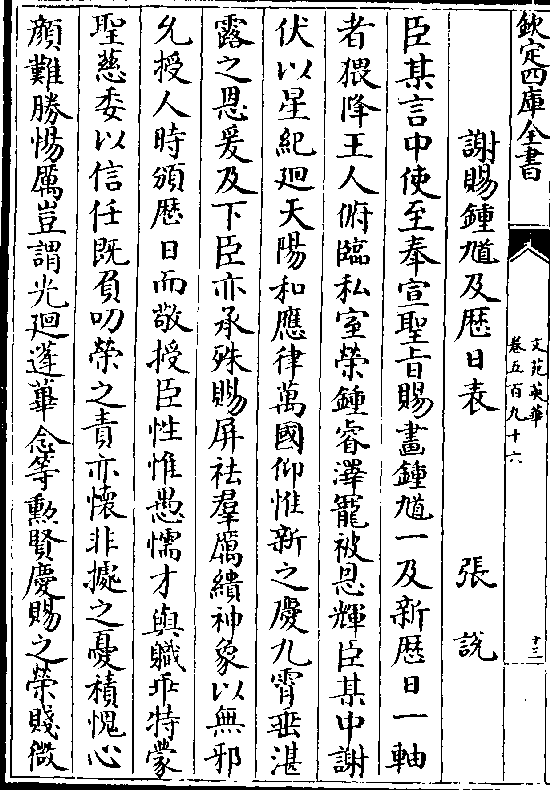 欽定四庫全書
文苑英華
卷五百九十六
十三
謝賜鍾馗及歴日表 張說
臣某言中使至奉宣聖旨賜畫鍾馗一及新歴日一軸
者猥降王人俯臨私室榮鍾睿澤寵被恩輝臣某中謝
伏以星紀廻天陽和應律萬國仰惟新之慶九霄垂湛
露之恩爰及下臣亦承殊賜屏祛羣厲繢神象以無邪
允授人時頒歴日而敬授臣性惟愚懦才與職乖特蒙
聖慈委以信任既負叨榮之責亦懷非據之憂積愧心
顔難勝惕厲豈謂光廻蓬蓽念等勲賢慶賜之榮賤微